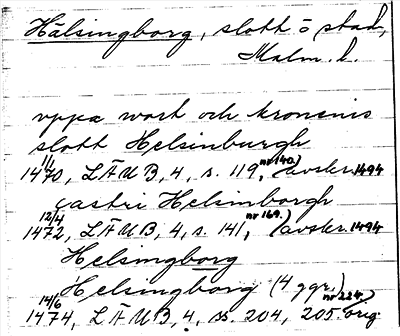 Hälsingborg, slott o stad,
Malm. l.
vppa wort och kronenis
slott Helsinburgh
11/1 1470, LÄUB, 4, s. 119, nr 140.) avskr. 1494
castri Helsinborgh
12/4 1472, LÄUB, 4, s. 141, nr 169.) avskr. 1494
Helsingborg
Helsingborg (4 ggr.)
14/6 1474, LÄUB, 4, ss. 204, 205. nr 224.) orig.